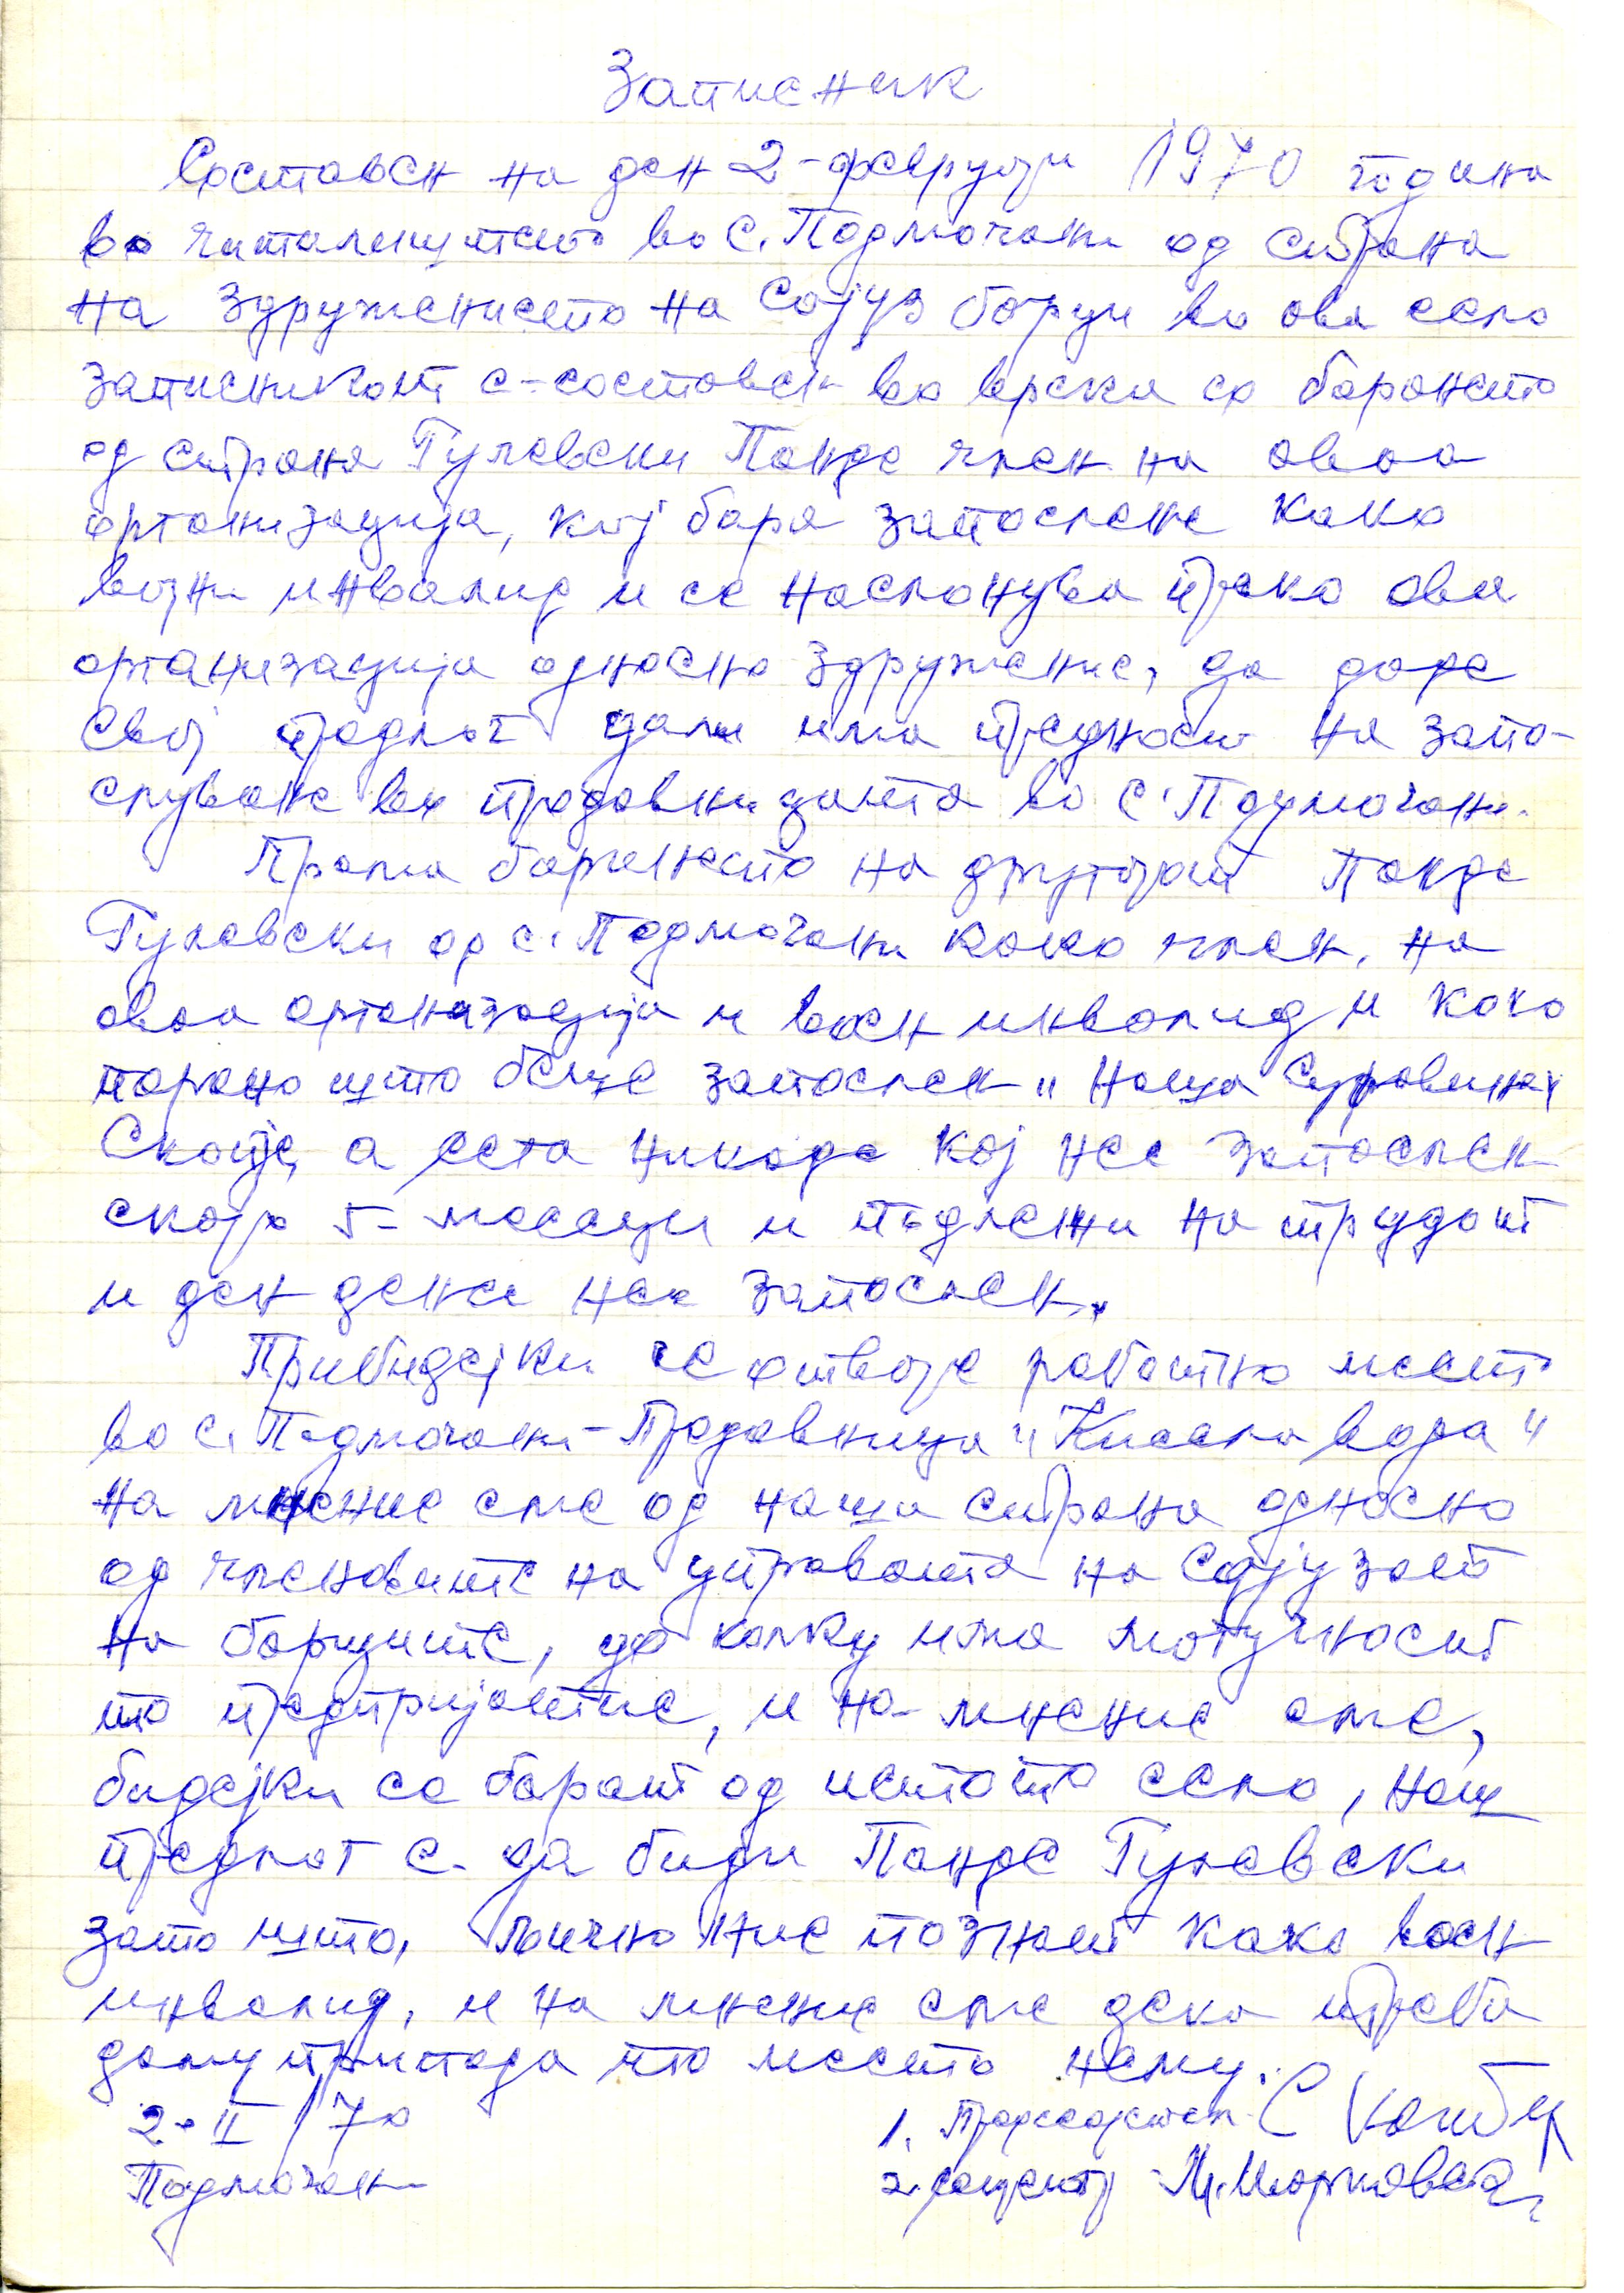 Записник
Составен на ден 2-февруари 1970 година
во читалиштето во с. Подмочани од страна
на здружението на Сојуз борци во ова село
записникот е-составен во врска со барањето
од страна Гулевски Панде член на оваа
организација, кој бара запослене како
војни инвалид и се наслонува преко ова
организација односно здружение, да даде
свој предлог дали има предност на запо-
слување во продавницата во с. Подмочани.
Према барањето на другарот Панде
Гулевски од с. Подмочани како член, на
оваа организација и воен инвалид и како
порано што беше запослен "Наша Суровина"
Скопје, а сега никаде кој нее запослен
скоро 5- месеци и подлежи на трудот
и ден денес нее запослен.
Прибидејки се отвора работно место
во с. Подмочани-Продавница "Кисела вода"
на мнение сме од наша страна односно
од членовите на управата на Сојузот
на борците, до колку има могучност
то предпријатие, и на-мнение сме,
бидејки се барат од истото село, наш
предлог е да биди Панде Гулевски
зато што, лично ние познат како воен
инвалид, и на мнение сме дека треба
даму припада тто место нему.
2-II/70
Подмочани
1. Председател
2. секретар